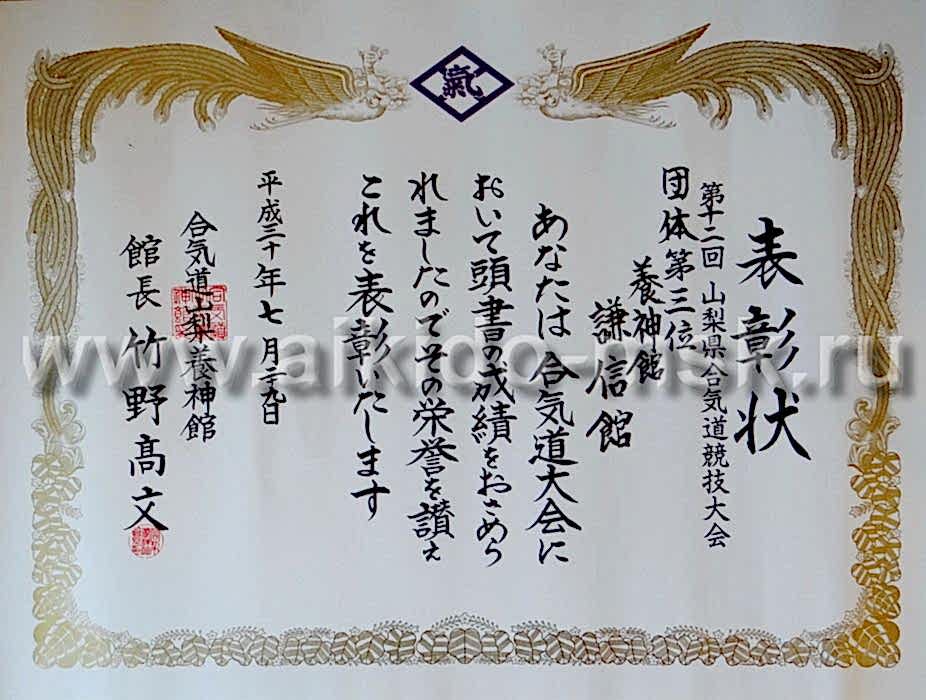 氣
表彰状
第十二回 山梨県合気道競技大会
団体第三位
養神館
謙信館
あなたは合気道大会に
おいて頭書の成績をおさめら
れましたのでその栄誉を讃え
これを表彰いたします
平成三十年七月二十九日
合気道山梨養神館
館長 竹野高文
www.aikido-msk.ru